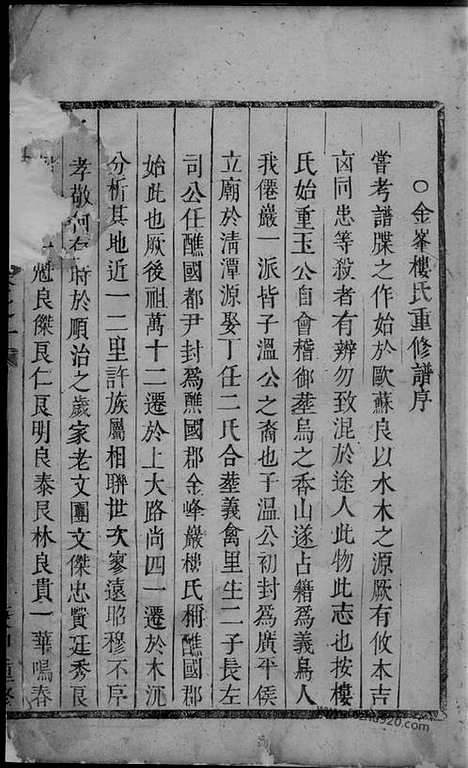 ○金峯樓氏重修譜序
嘗考譜牒之作始於歐蘇良以水木之源厥有攸本吉
凶同患等殺者有辨勿致混於途人此物此志也按樓
氏始重玉公自會稽御塟烏之香山遂占籍爲義烏人
我僊巖一派皆子溫公之裔也子溫公初封爲廣平侯
立廟於淸潭源娶丁任二氏合塟義禽里生二子長左
司公任醮國都尹封爲醮國郡金峰巖樓氏稱醮國郡
始此也厥後祖萬十二遷於上大路尚四一遷於木沉
分析其地近一二里許族屬相聯世次寥遠昭穆不序
孝敬何有時於順治之歲家老文團文傑忠賢廷秀良
魁良傑良仁良明良泰良林良貴一華鳴春